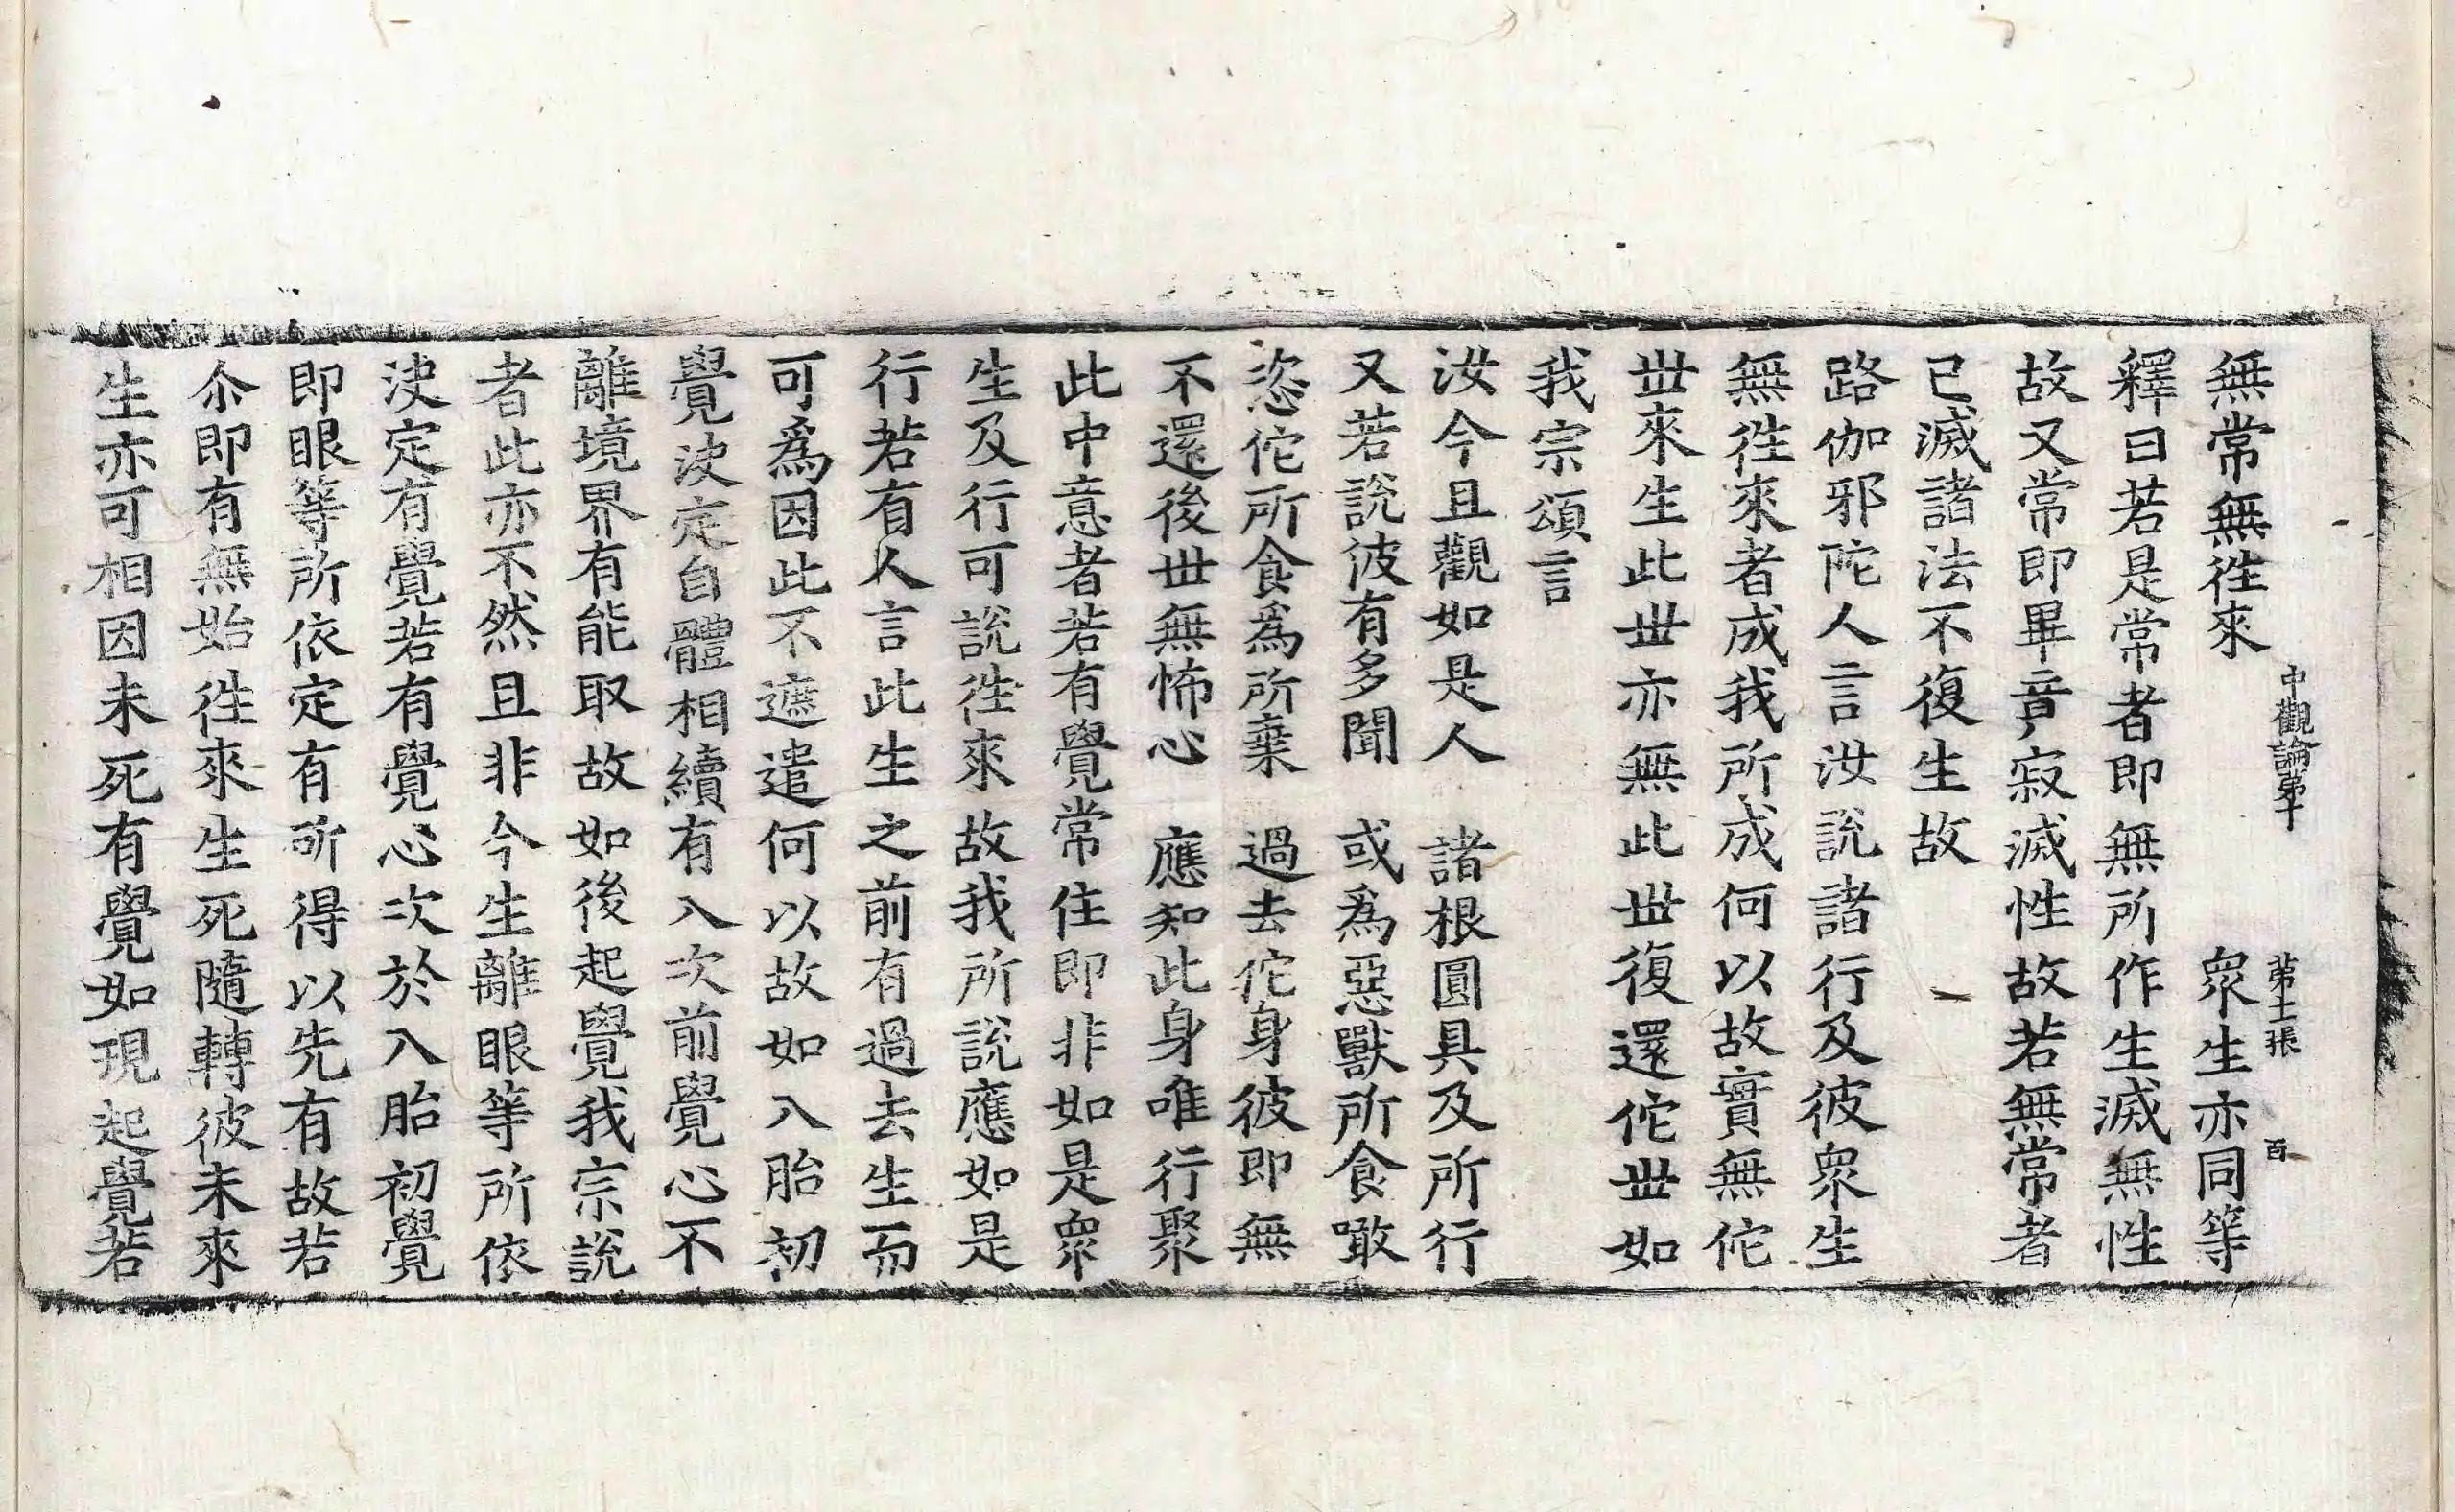 中觀論第十 第十二張 百
無常無徃來 衆生亦同等
釋曰若是常者即無所作生滅無性
故又常即畢竟寂滅性故若無常者
已滅諸法不復生故
路伽邪陀人言汝說諸行及彼衆生
無徃來者成我所成何以故實無佗
丗來生此丗亦無此丗復還佗丗如
我宗頌言
汝今且觀如是人 諸根圓具及所行
又若說彼有多聞 或爲惡獸所食噉
恣佗所食爲所棄 過去佗身彼即無
不還後丗無怖心 應知此身唯行聚
此中意者若有覺常住即非如是衆
生及行可說徃來故我所說應如是
行若有人言此生之前有過去生而
可爲因此不遮遣何以故如入胎初
覺決定自體相續有入次前覺心不
離境界有能取故如後起覺我宗說
者此亦不然且非今生離眼等所依
決定有覺若有覺心次於入胎初覺
即眼等所依定有所得以先有故若
尒即有無始徃來生死隨轉彼未來
生亦可相因未死有覺如現起覺若